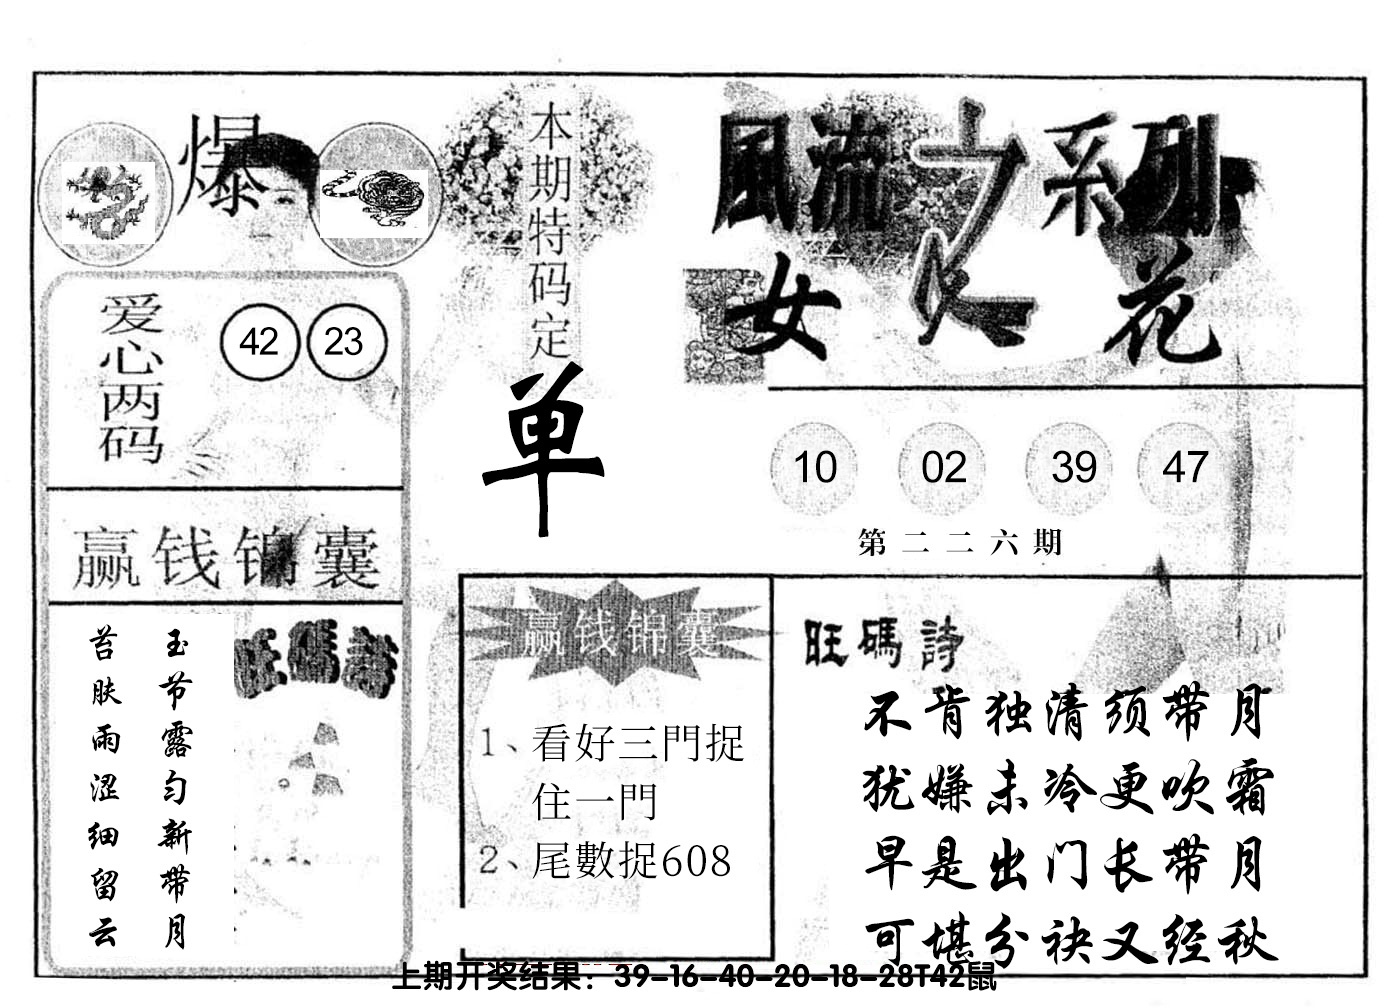 爆
本期特码定
单
風流之系列
女人花
爱心两码
42 23
10 02 39 47
第二二六期
赢钱锦囊
玉节露匀新带月
苔肤雨涩细留云
旺碼詩
赢钱锦囊
1、看好三門捉
住一門
2、尾數捉608
旺碼詩
不肯独清须带月
犹嫌未冷更吹霜
早是出门长带月
可堪分袂又经秋
上期开奖结果：39-16-40-20-18-28T42鼠